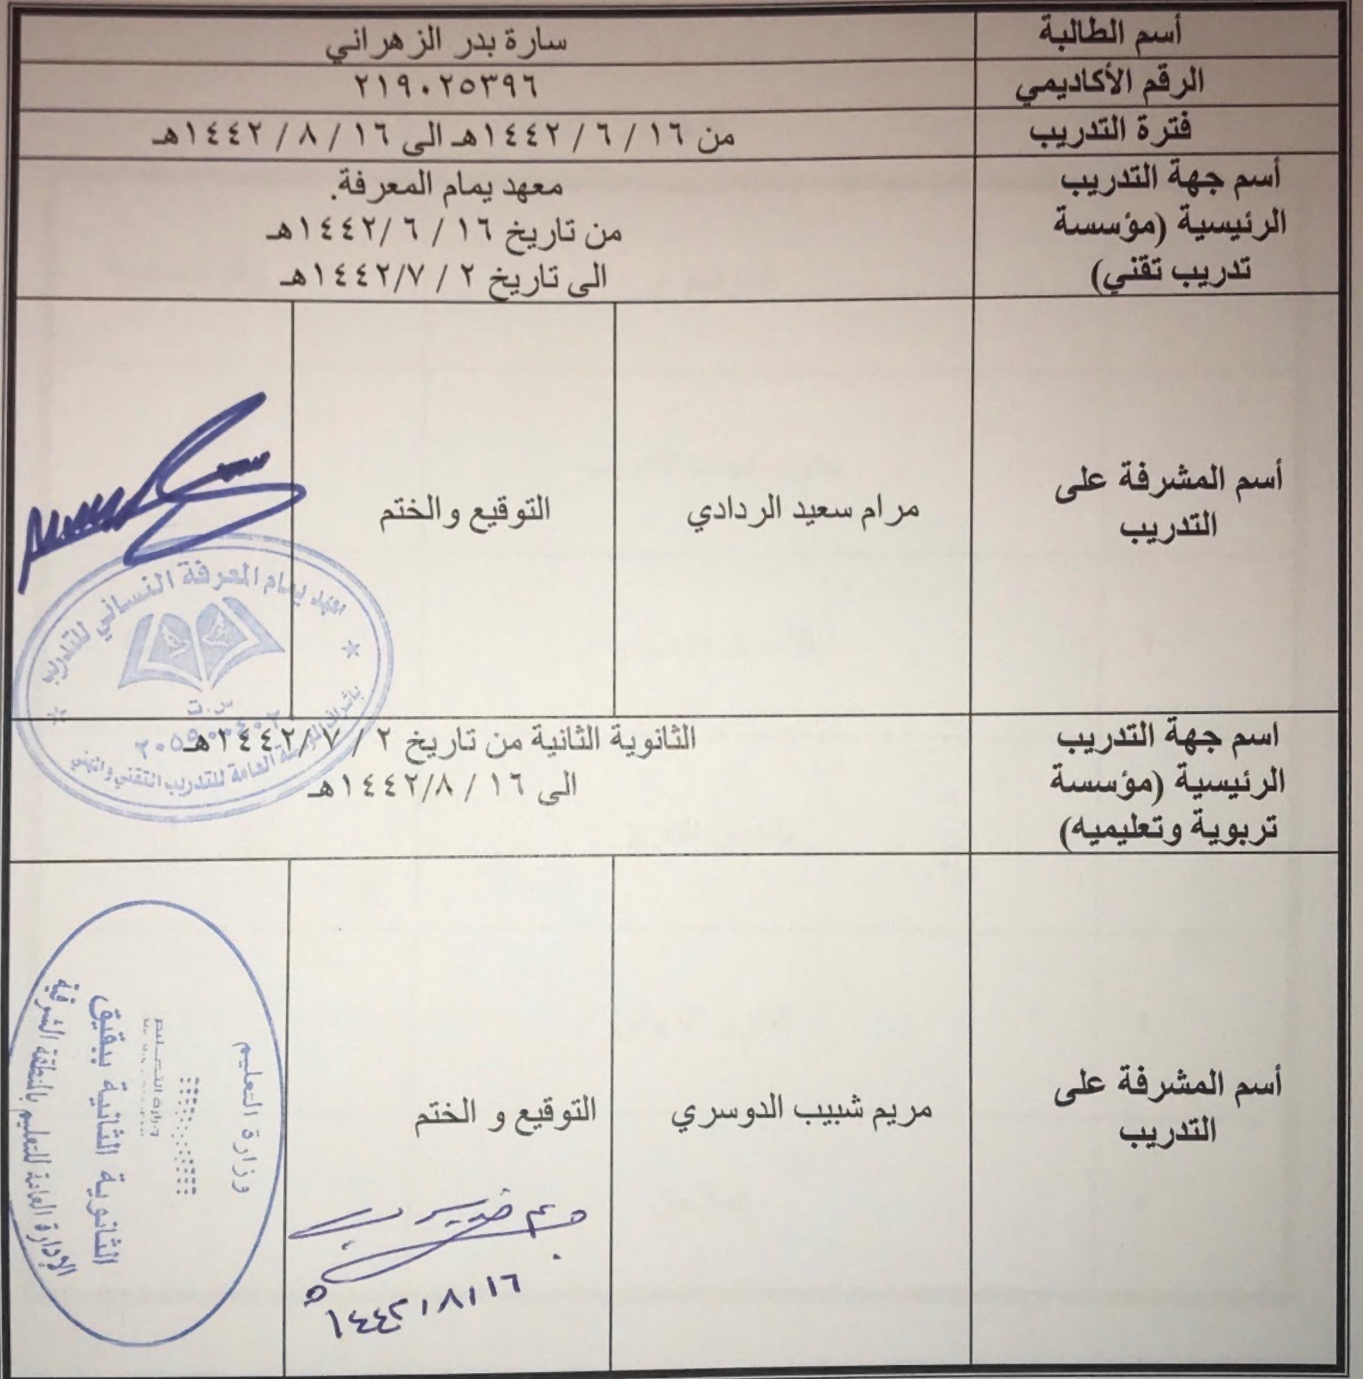 أسم الطالبة
سارة بدر الزهراني
الرقم الأكاديمي
٢١٩٠٢٥٣٩٦
فترة التدريب
من ١٦ / ٦ / ١٤٤٢هـ الى ١٦ / ٨ / ١٤٤٢هـ
أسم جهة التدريب
الرئيسية (مؤسسة
تدريب تقني)
معهد يمام المعرفة.
من تاريخ ١٦ / ٦ /١٤٤٢هـ
الى تاريخ ٢ / ١٤٤٢/٧هـ
أسم المشرفة على
التدريب
مرام سعيد الردادي
التوقيع والختم
معهد يمام المعرفة النسائي للتدريب
س.ت
باشراف المؤسسة العامة للتدريب التقني والمهني
اسم جهة التدريب
الرئيسية (مؤسسة
تربوية وتعليميه)
الثانوية الثانية من تاريخ ٢ / ١٤٤٢/٧هـ
الى ١٦ / ١٤٤٢/٨هـ
أسم المشرفة على
التدريب
مريم شبيب الدوسري
التوقيع و الختم
١٤٤٢/٨/١٦ه
وزارة التعليم
وزارة التعليم
الثانوية الثانية ببقيق
الإدارة العامة للتعليم بالمنطقة الشرقية